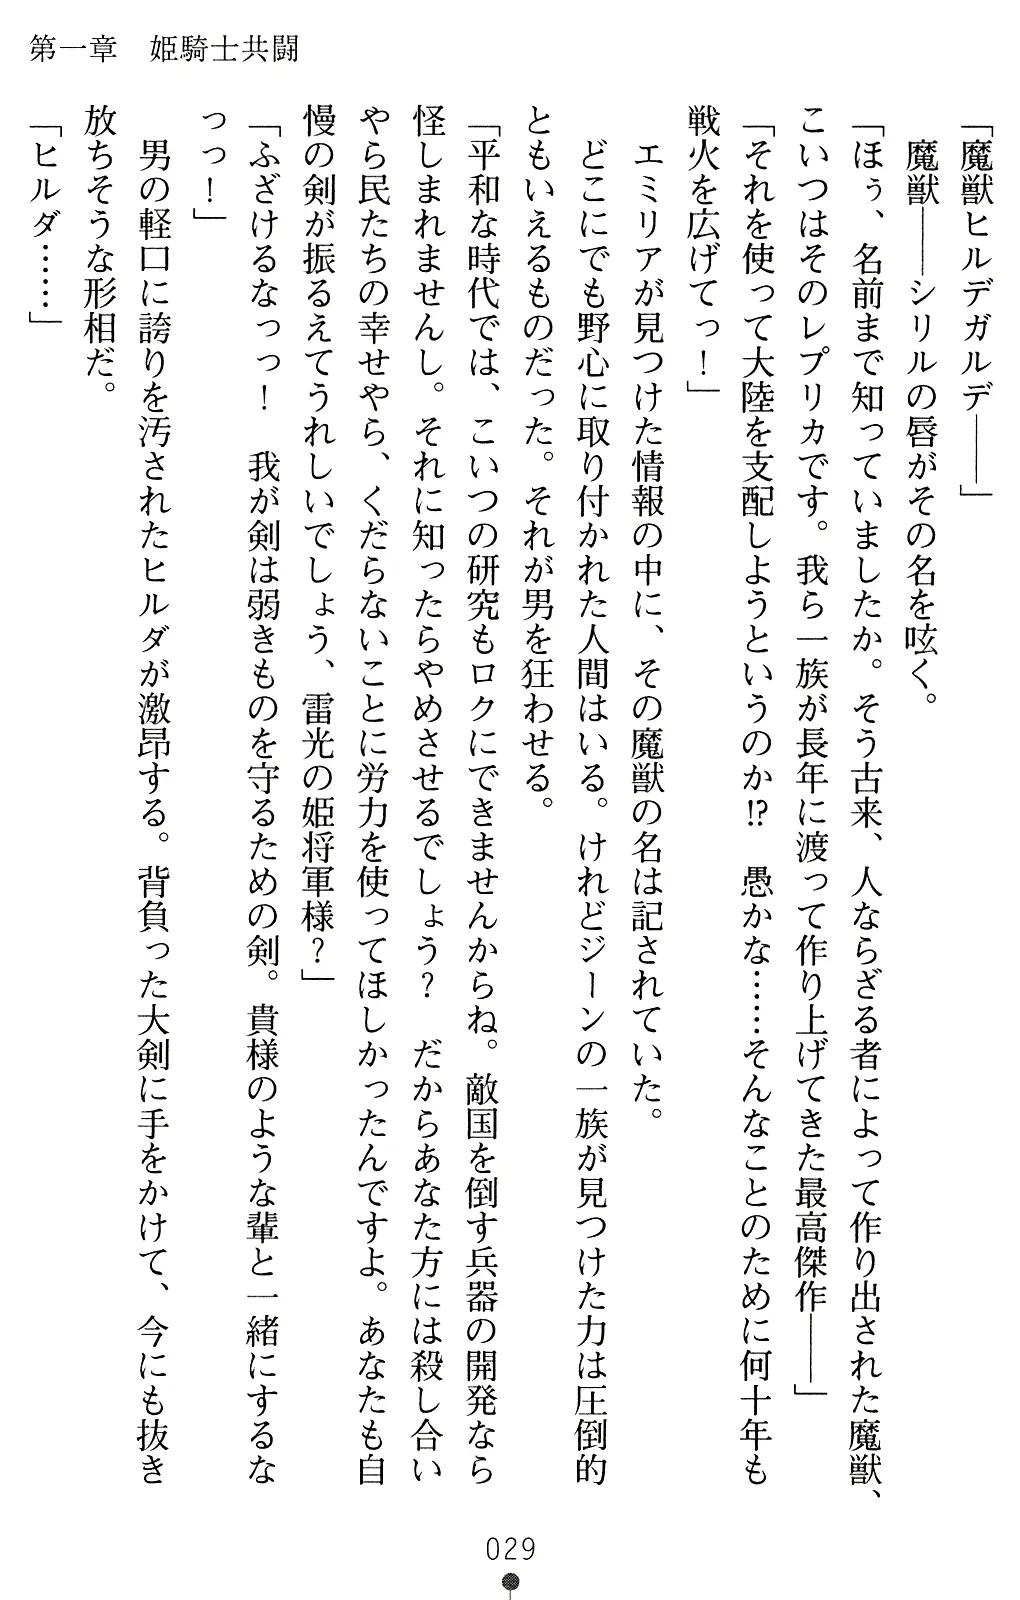 第一章　姫騎士共闘
「魔獣ヒルデガルデ――」
　魔獣――シリルの唇がその名を呟く。
「ほぅ、名前まで知っていましたか。そう古来、人ならざる者によって作り出された魔獣、
こいつはそのレプリカです。我ら一族が長年に渡って作り上げてきた最高傑作――」
「それを使って大陸を支配しようというのか!?　愚かな……そんなことのために何十年も
戦火を広げてっ！」
　エミリアが見つけた情報の中に、その魔獣の名は記されていた。
　どこにでも野心に取り付かれた人間はいる。けれどジーンの一族が見つけた力は圧倒的
ともいえるものだった。それが男を狂わせる。
「平和な時代では、こいつの研究もロクにできませんからね。敵国を倒す兵器の開発なら
怪しまれませんし。それに知ったらやめさせるでしょう？　だからあなた方には殺し合い
やら民たちの幸せやら、くだらないことに労力を使ってほしかったんですよ。あなたも自
慢の剣が振るえてうれしいでしょう、雷光の姫将軍様？」
「ふざけるなっっ！　我が剣は弱きものを守るための剣。貴様のような輩と一緒にするな
っっ！」
　男の軽口に誇りを汚されたヒルダが激昂する。背負った大剣に手をかけて、今にも抜き
放ちそうな形相だ。
「ヒルダ……」
029